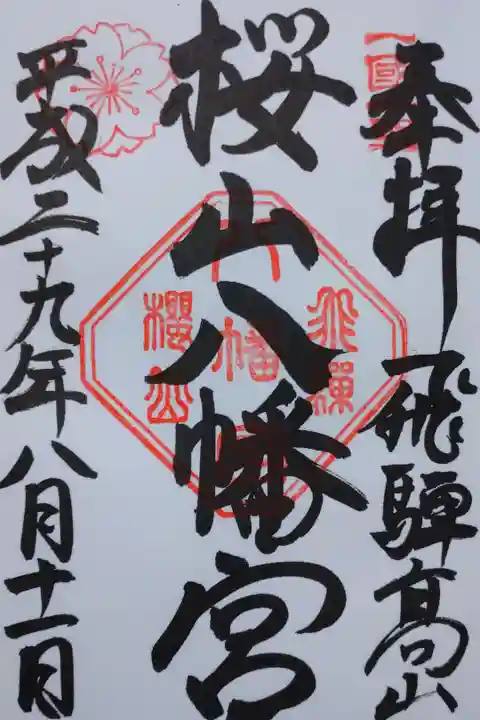 奉拝 飛騨高山
桜山八幡宮
平成二十九年八月十一日
飛驒
八幡
櫻山